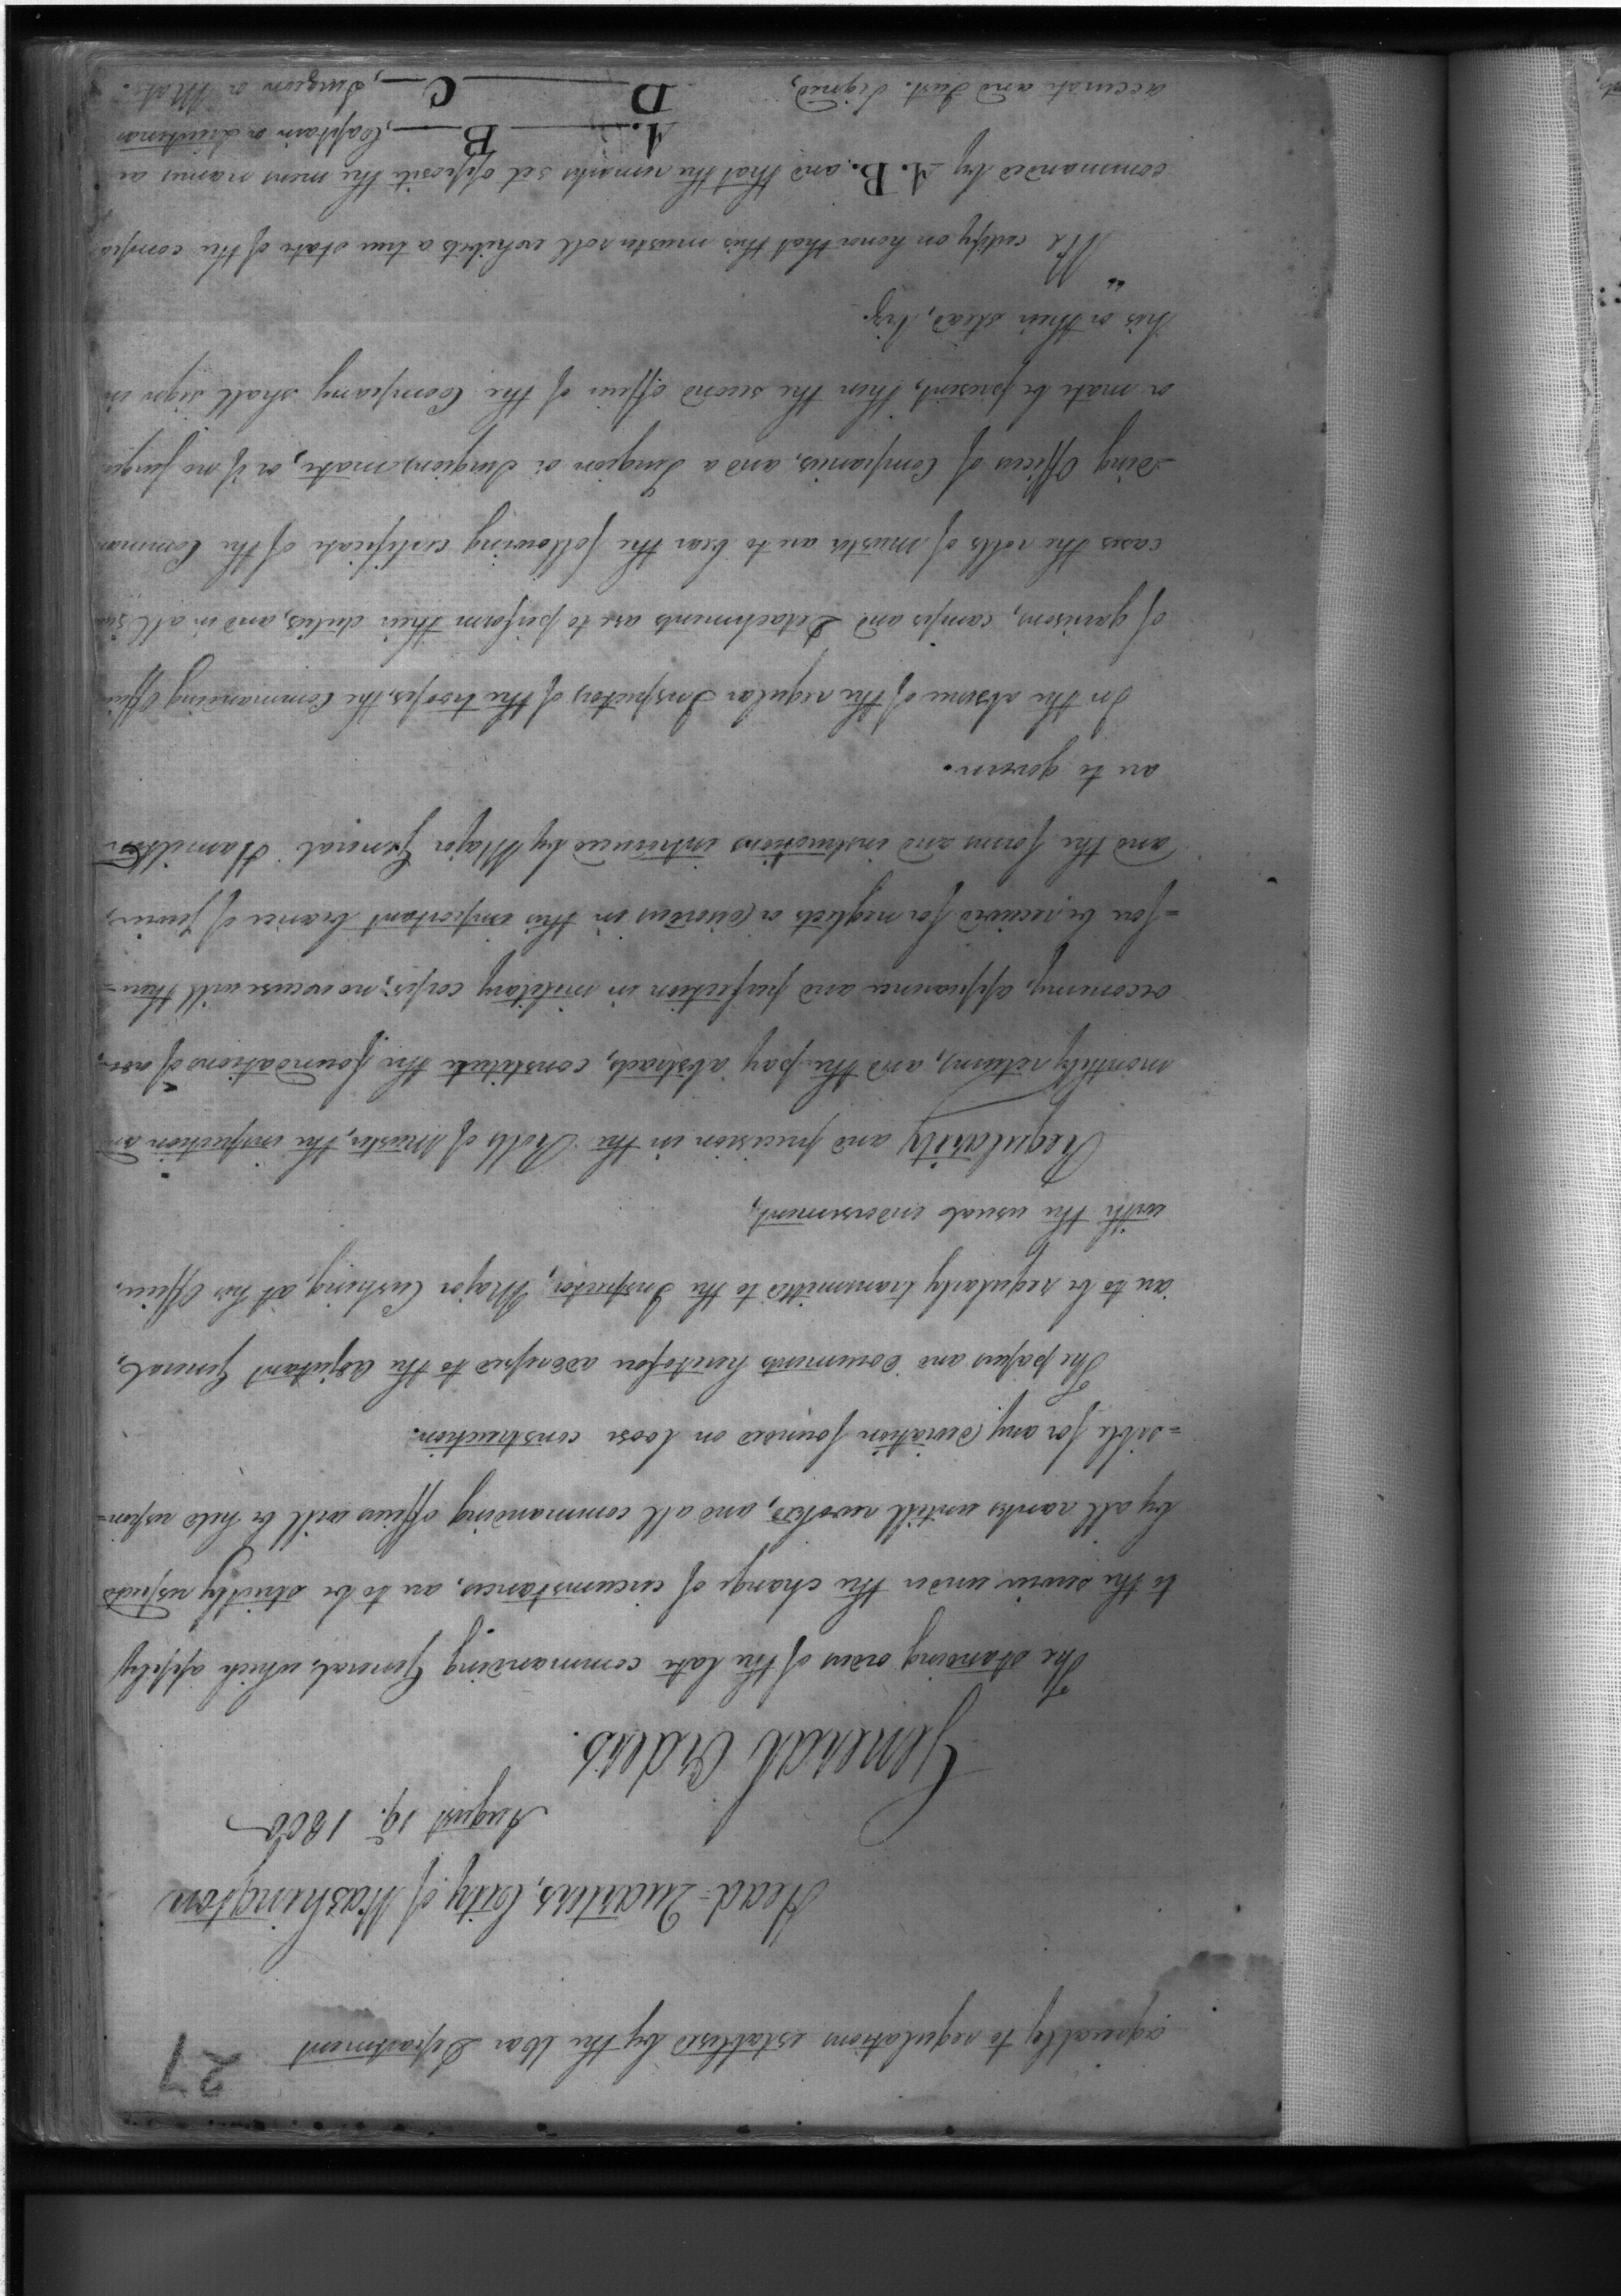 27
agreeably to regulations establised by the War Department
Head-Quarters, City of Washington
August 19. 1800
General Orders.
The standing orders of the late commanding General, which apply
to the service under the change of circumstances, are to be strictly respected
by all ranks untill revoked, and all commanding officers will be held respon=
=sible for any deviation founded on loose construction.
The papers and documents heretofore addressed to the Adjutant General,
are to be regularly transmitted to the Inspector, Major Cushing, at his Office,
with the usual endorsement,
Regularity and precision in the Rolls of Muster, the inspection and
monthly returns, and the pay abstracts, constitute the foundations of
oeconomy, appearance and perfection in military corps; no excuse will there=
=fore be received for neglects or omissions in this important branch of service,
and the forms and instructions introduced by Major General Hamilton
are to govern.
In the absence of the regular Inspectors of the troops, the Commanding Officers
of garrisons, camps and Detachments are to perform their duties, and in all such
cases the rolls of muster are to bear the following certificate of the Comman
=ding Officers of Companies, and a Surgeon or Surgeons mate, or if no Surgeon
or mate be present, then the second officer of the Company shall sign in
his or their stead, Viz.
"We certify on honor that this muster roll exhibits a true state of the company
commanded by A. B. and that the remarks set opposite the mens names are
accurate and Just. Signed,
A. B , Captain or Lieutenant
D C , Surgeon or Mate.